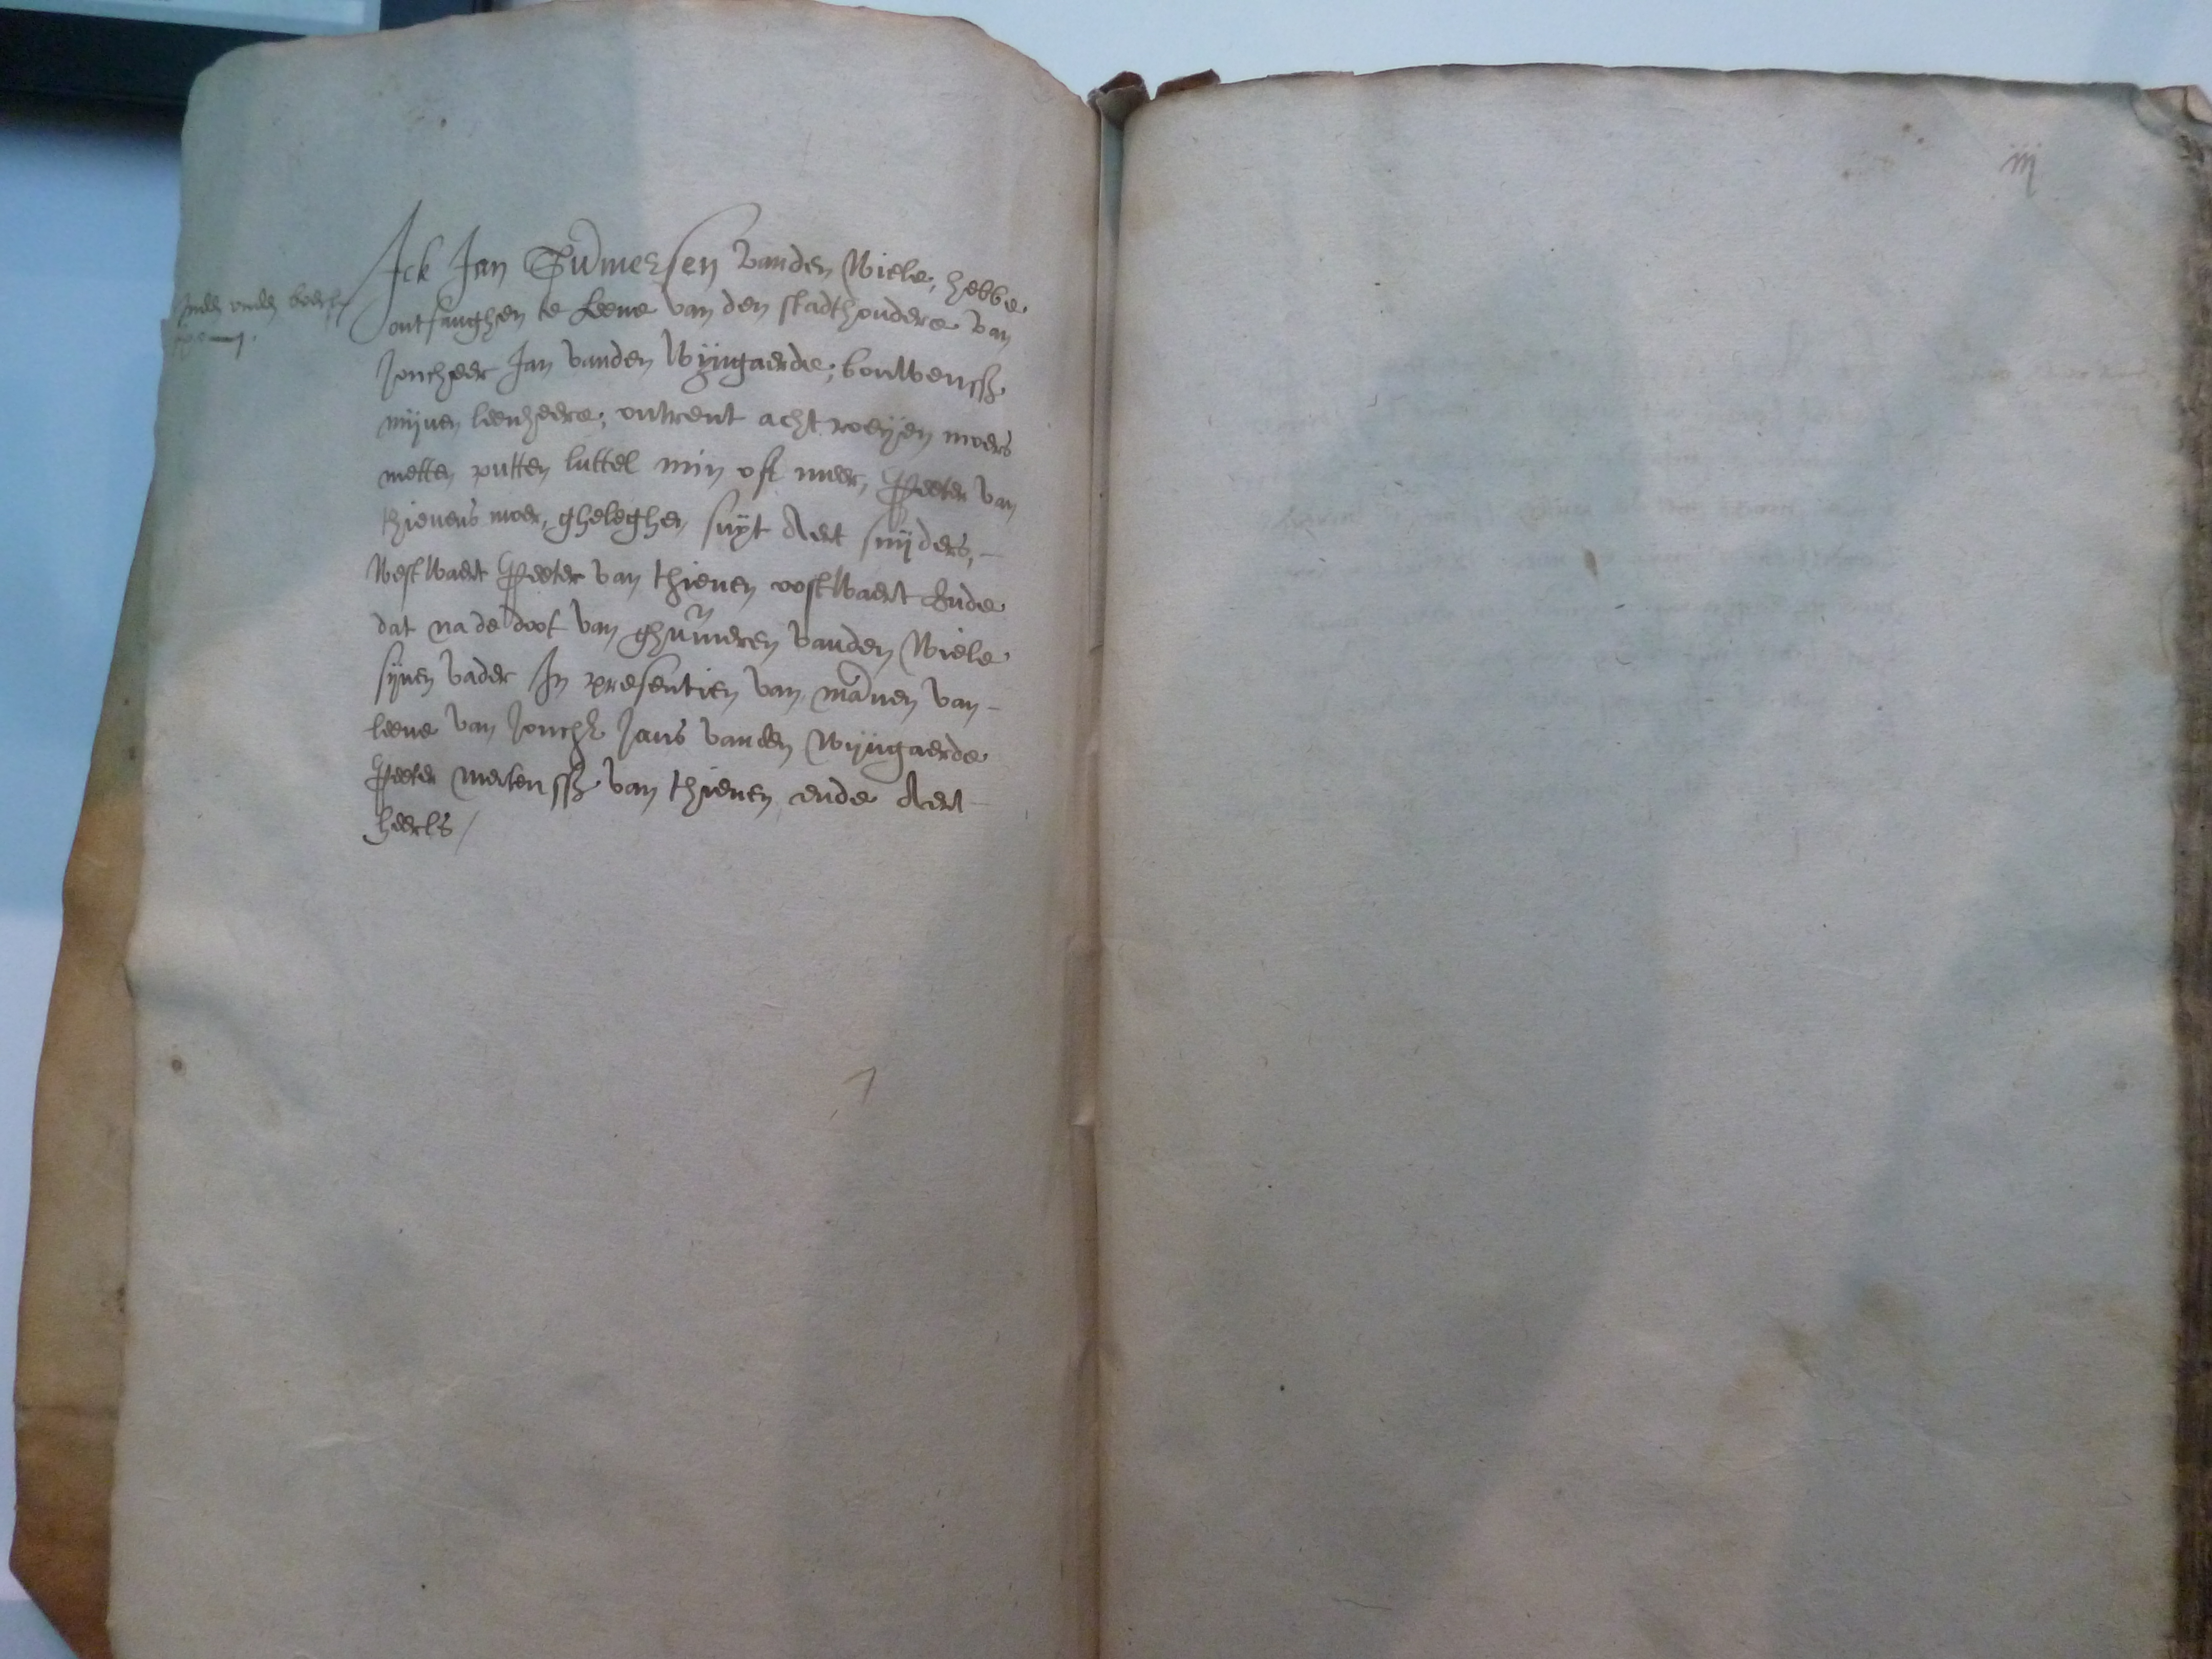 iij
Ick Jan Gummersen vanden Wiele, hebbe
ontfanghen te Leene van den stadthoudere van
Joncheer Jan vanden Wijngaerde, bouwenss
mijnen leenheere, ontrent acht roeyen moers
metten putten luttel min oft meer, Peeter van
thienens moer, gheleghen suyt Aert snijders, -
westwaert Peeter van thienen oostwaert Ende
dat na de doot van ghūmeren vanden Wiele
sijnen vader In presentien van mannen van -
leene van Jonchr Jans vanden Wijngaerde
Peeter mertenss van thienen ende Aert
heerls /